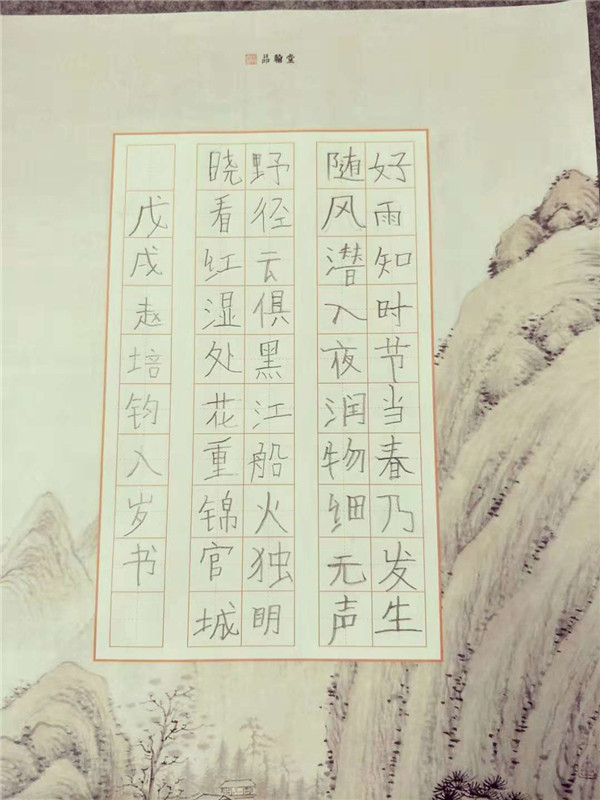 品翰堂
好雨知时节当春乃发生
随风潜入夜润物细无声
野径云俱黑江船火独明
晓看红湿处花重锦官城
戊戌赵培钧八岁书